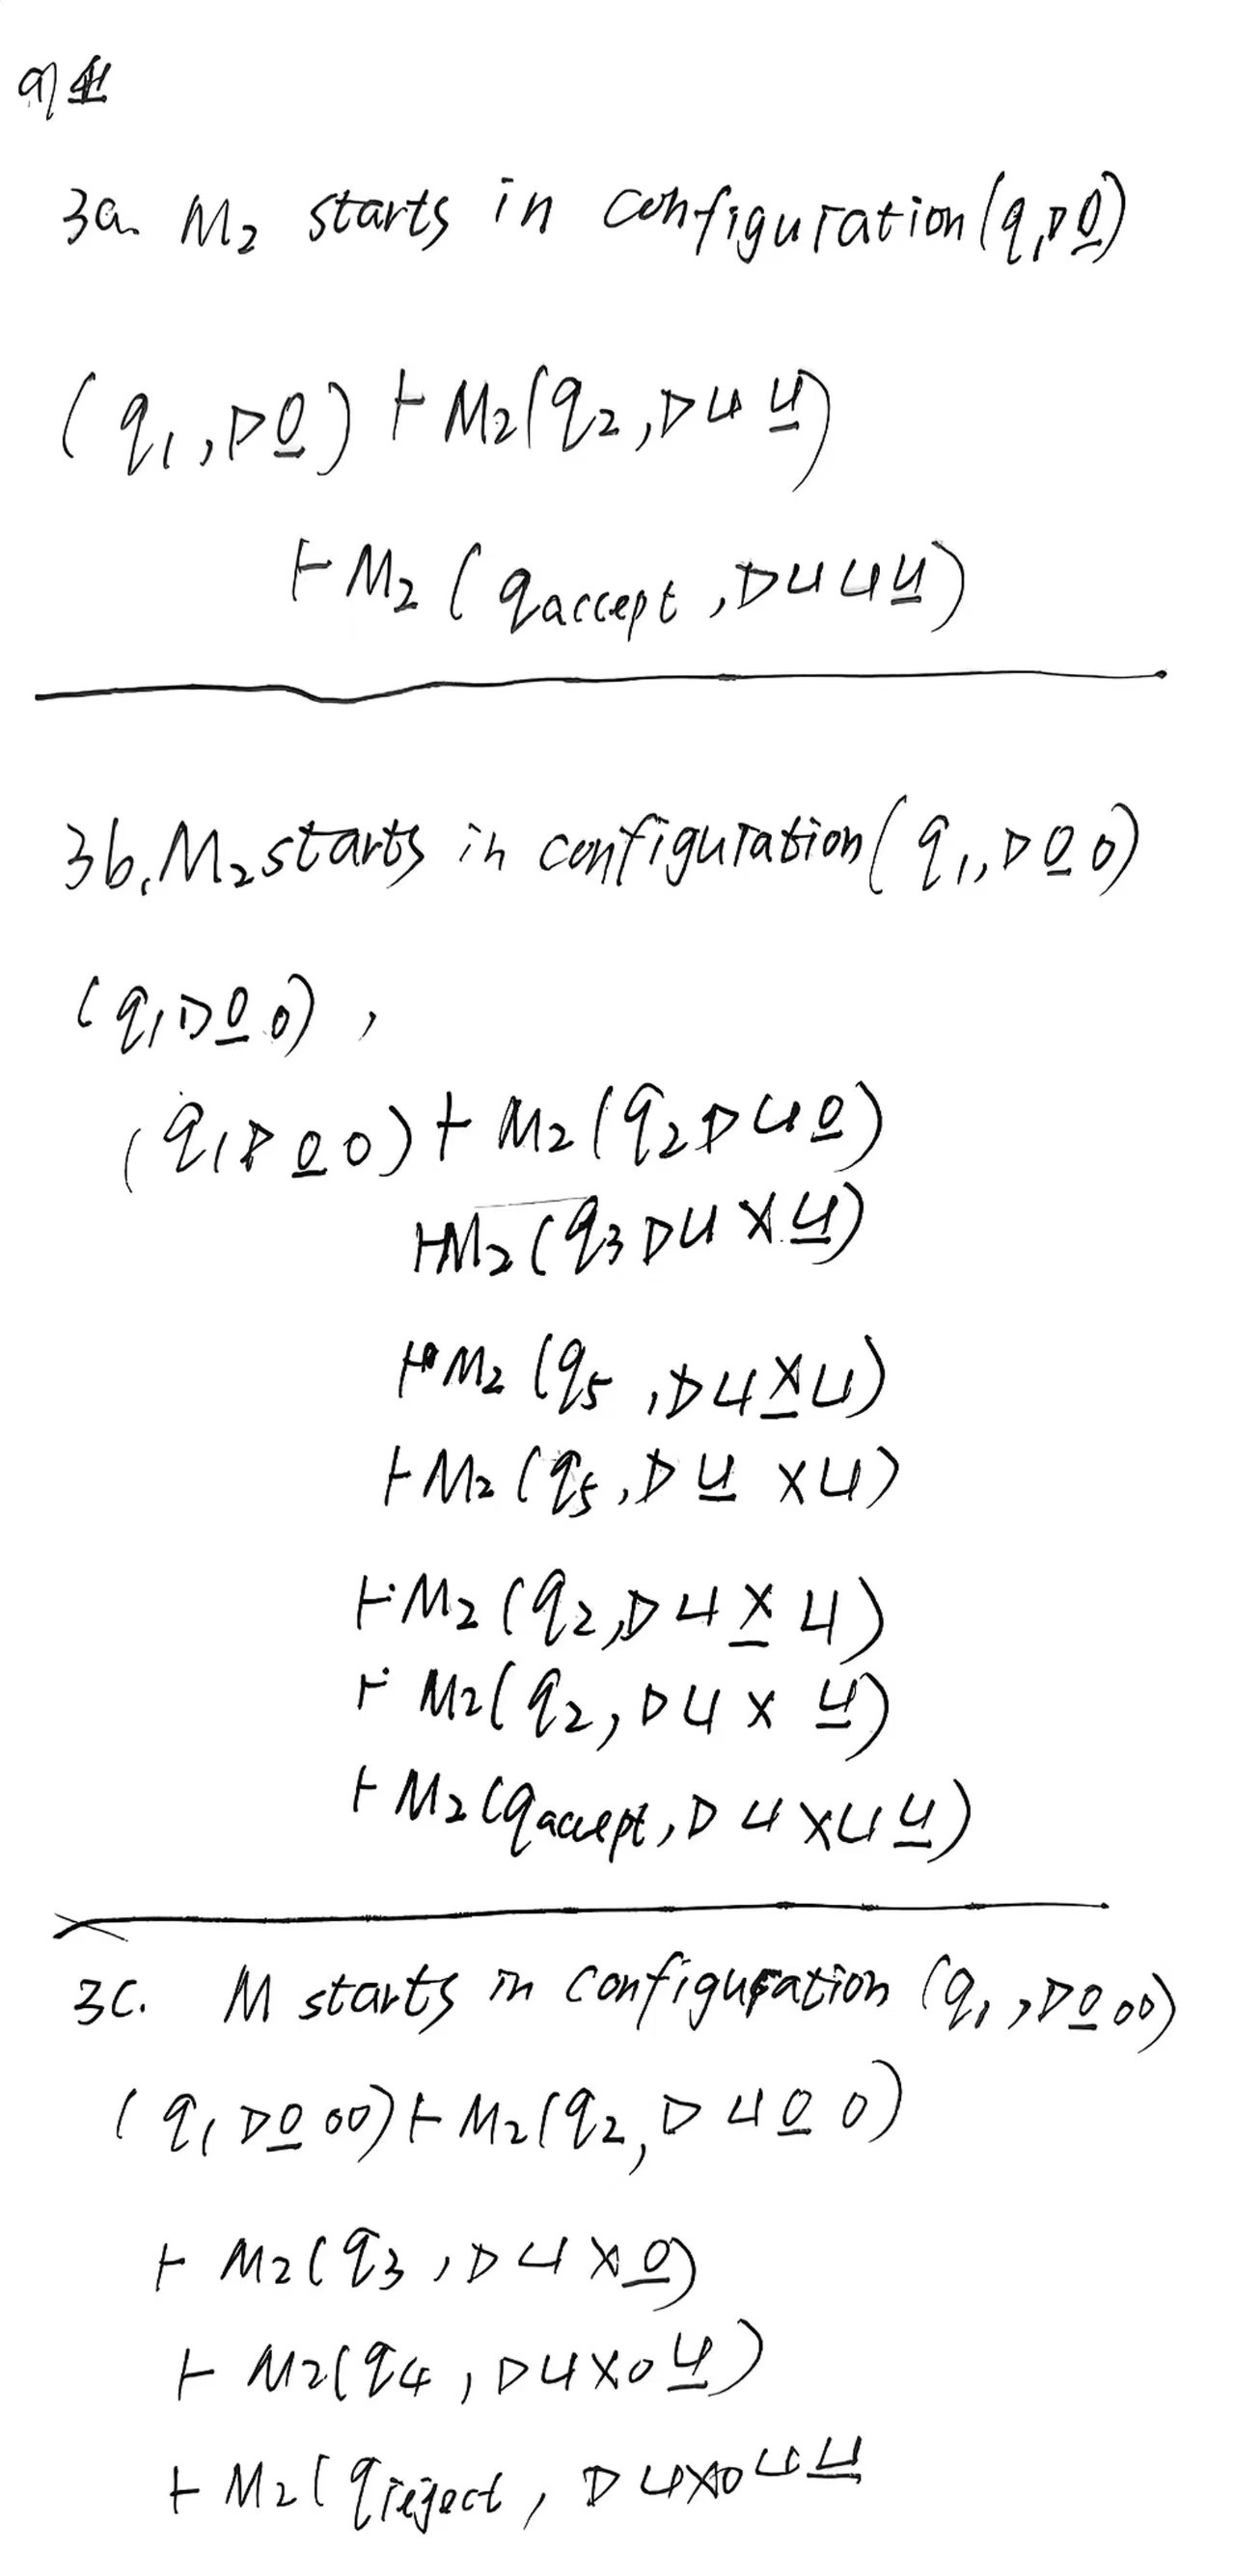 3a. M₂ starts in configuration (q, ▷0̲)
(q₁, ▷0̲) ⊢ M₂(q₂, ▷⊔⊔̲)
⊢ M₂ (q accept, ▷⊔⊔⊔̲)
3b. M₂ starts in configuration (q₁, ▷0̲0)
(q₁▷0̲0),
(q₁▷0̲0) ⊢ M₂(q₂▷⊔0̲)
⊢M₂(q₃▷⊔X⊔̲)
⊢M₂ (q₅, ▷⊔X̲⊔)
⊢M₂ (q₅, ▷⊔̲X⊔)
⊢M₂ (q₂, ▷⊔X̲⊔)
⊢ M₂(q₂, ▷⊔X⊔̲)
⊢ M₂(q accept, ▷⊔X⊔⊔̲)
3c. M starts in configuration (q₁, ▷0̲00)
(q₁▷0̲00) ⊢ M₂(q₂, ▷⊔0̲0)
⊢ M₂(q₃, ▷⊔X0̲)
⊢ M₂(q₄, ▷⊔X0⊔̲)
⊢ M₂(q reject, ▷⊔X0⊔⊔̲